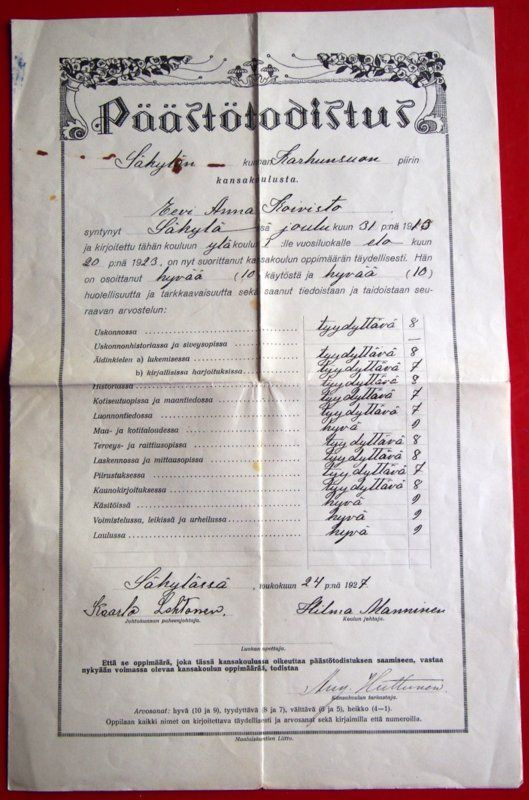 Päästötodistus
Säkylän kunnan Karhunsuon piirin
kansakoulusta.
Eevi Anna Koivisto
syntynyt Säkylä ssä joulu kuun 31 p:nä 1913
ja kirjoitettu tähän kouluun yläkoulu :lle vuosiluokalle elo kuun
20 p:nä 1923, on nyt suorittanut kansakoulun oppimäärän täydellisesti. Hän
on osoittanut hyvää (10) käytöstä ja hyvää (10)
huolellisuutta ja tarkkaavaisuutta sekä saanut tiedoistaan ja taidoistaan seu-
raavan arvostelun:
Uskonnossa tyydyttävä 8
Uskonnonhistoriassa ja siveysopissa —
Äidinkielen a) lukemisessa tyydyttävä 8
b) kirjallisissa harjoituksissa tyydyttävä 7
Historiassa tyydyttävä 8
Kotiseutuopissa ja maantiedossa tyydyttävä 7
Luonnontiedossa tyydyttävä 7
Maa- ja kotitaloudessa hyvä 9
Terveys- ja raittiusopissa tyydyttävä 8
Laskennossa ja mittausopissa tyydyttävä 8
Piirustuksessa tyydyttävä 7
Kaunokirjoituksessa tyydyttävä 8
Käsitöissä hyvä 9
Voimistelussa, leikissä ja urheilussa hyvä 9
Laulussa hyvä 9
Säkylässä, toukokuun 24 p:nä 1927
Kaarlo Lehtonen. Hilma Manninen
Johtokunnan puheenjohtaja. Koulun johtaja.
Luokan opettaja.
Että se oppimäärä, joka tässä kansakoulussa oikeuttaa päästötodistuksen saamiseen, vastaa
nykyään voimassa olevaa kansakoulun oppimäärää, todistaa
Aug. Huttunen
Kansakoulun tarkastaja.
Arvosanat: hyvä (10 ja 9), tyydyttävä (8 ja 7), välttävä (6 ja 5), heikko (4—1).
Oppilaan kaikki nimet on kirjoitettava täydellisesti ja arvosanat sekä kirjaimilla että numeroilla.
Maalaiskuntien Liitto.